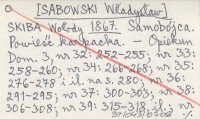 [SABOWSKI Władysław]
SKIBA Wołody 1867. Samobójca.
Powieść karpacka. — Opiekun
Dom. 3, nr 32: 252-255; nr 33:
258-260; nr 34: 266-268; nr 35:
276-278 i il. na s. 280; nr 36:
291-293; nr 37: 300-303; nr 38:
306-308; nr 39: 315-318, il.; nr